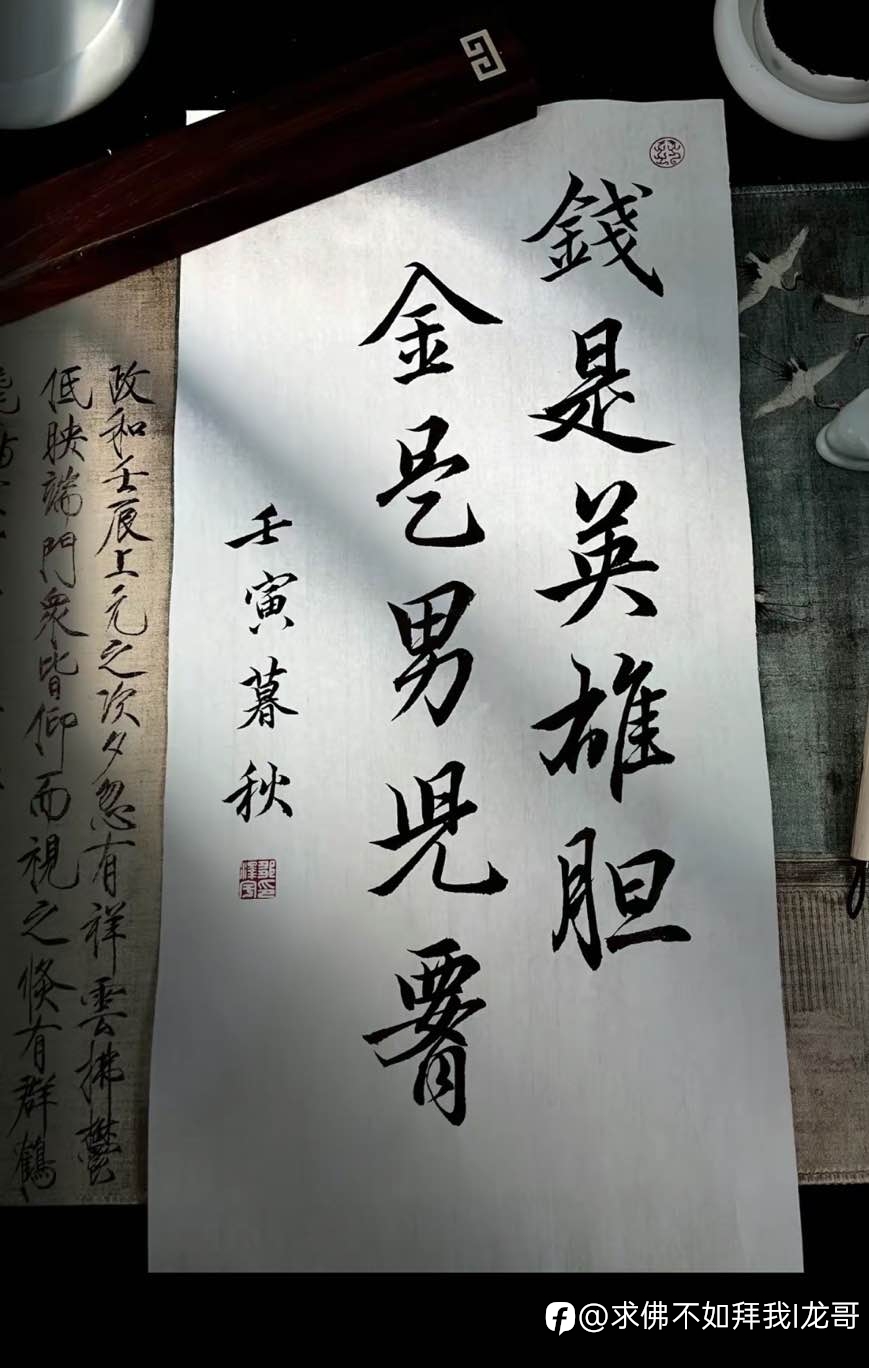 錢是英雄胆
金是男児𦝫
壬寅暮秋
政和壬辰上元之次夕忽有祥雲拂鬱
低映端門衆皆仰而視之倏有群鶴
@求佛不如拜我I龙哥